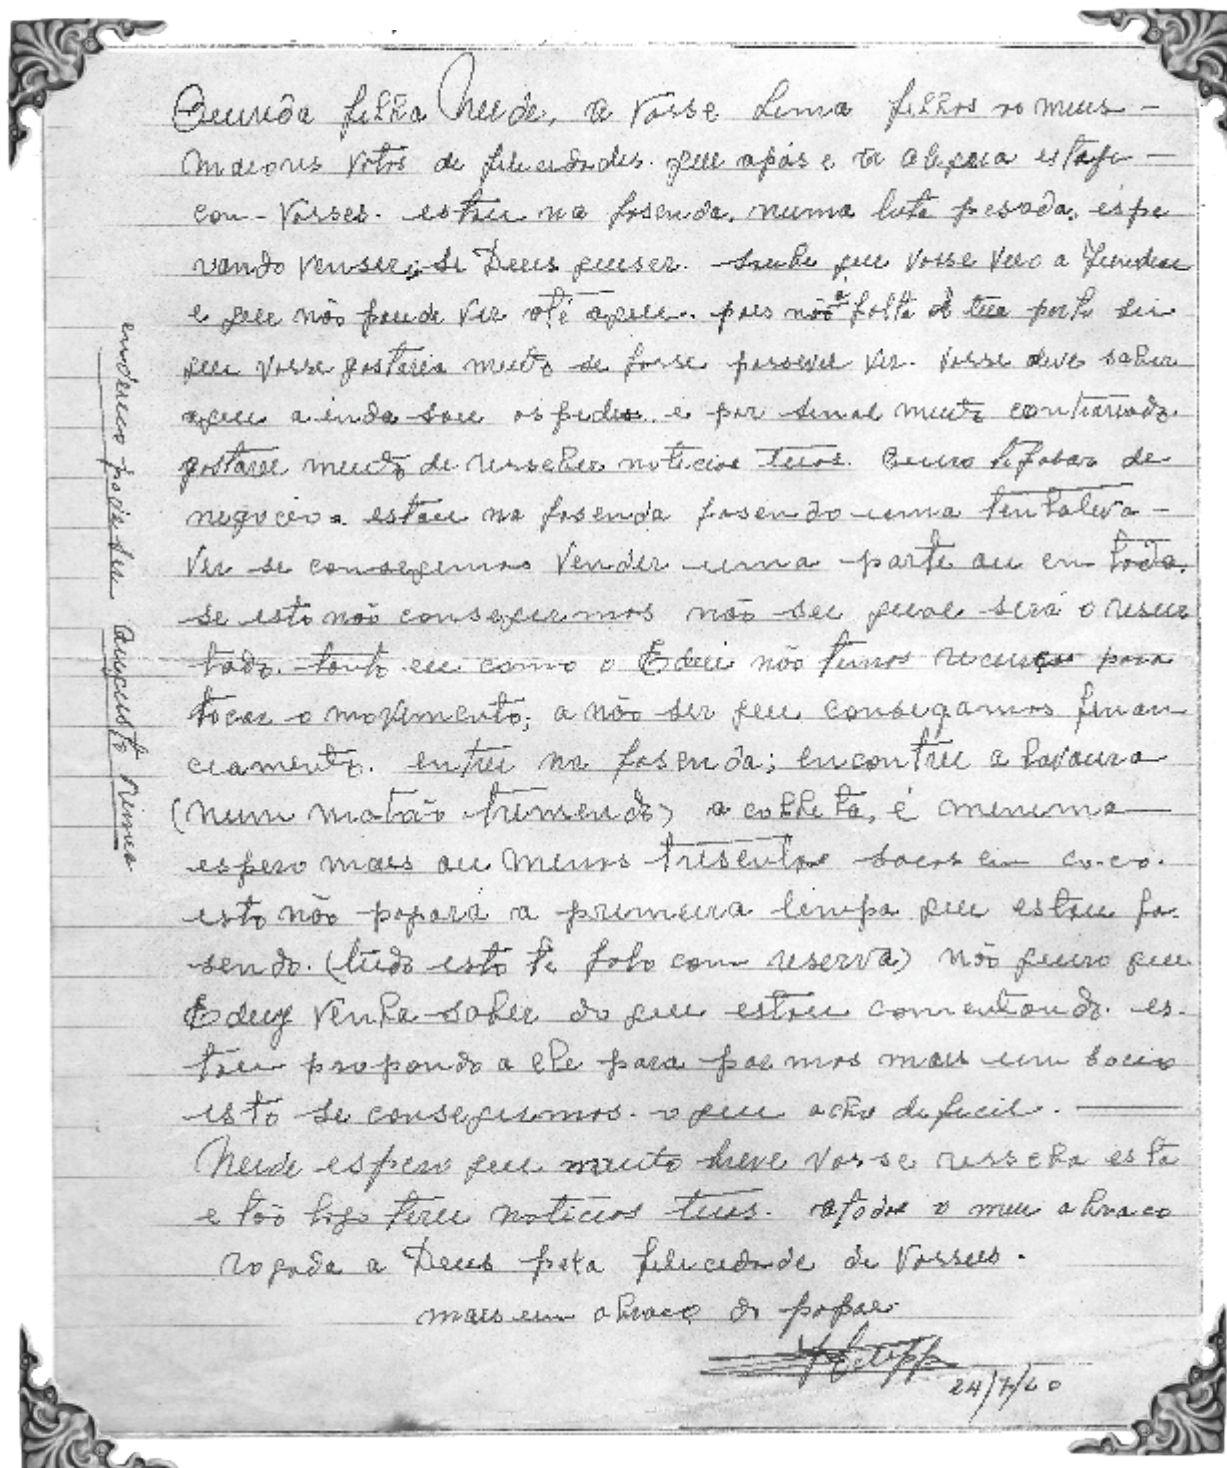 Querida filha Neide, a Vosse Lima filhos os meus -
maiores Votos de felicidades. que a pás e a alegria esteja -
con - Vosses. estou na fasenda, numa luta pesada, espe
rando venser; si Deus quiser. Soube que Vosse veio a Jundiai
e que não poude vir até aqui. pois não é falta de tua parte sei
que Vosse gostaria muito se fosse possivel vir. Vosse deve saber
aqui ainda sou ospede. e por sinal muito contrariado
gostarei muito de resseber noticias tuas. Quero te falar de
negocios. estou na fasenda fasendo uma tentativa -
ver se conseguimos Vender uma parte ou en toda.
se isto não conseguirmos não sei qual será o resul
tado. tanto eu como o Edui não temos recursos para
tocar o movimento; a não ser que consegamos finan
ciamento. entrei na fasenda; encontrei a lavoura
(num matão tremendo) a colheita, é minima
espero mais ou menos tresentos sacos en co-co.
isto não pagará a primeira limpa que estou fa-
sendo. (tudo isto te falo com reserva) não quero que
Eduy venha saber do que estou comentando. es-
tou propondo a ele para por mos mais um socio
isto se conseguirmos. o que acho dificil.
Neide espero que muito breve Vosse resseba esta
e tão logo terei noticias tuas. a todos o meu abraco
rogada a Deus pela felicidade de Vosses.
mais um abraco do papai
Felipp
24/7/60
endereco pode ser Augusto Nunes